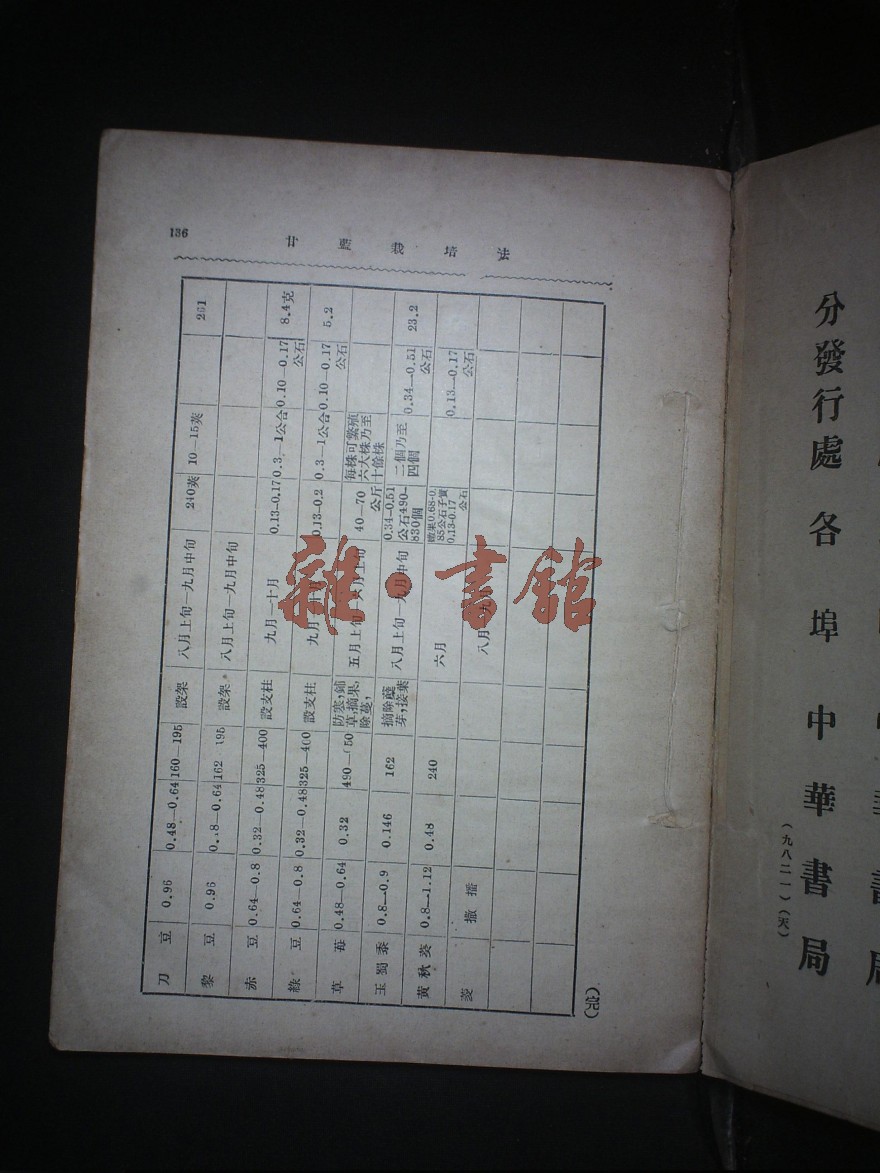 136
刀豆 0.96 0.48—0.64 160—195 設架 八月上旬—九月中旬 240莢 10—15莢 261
黎豆 0.96 0.64 162 設架 八月上旬—九月中旬
赤豆 0.64—0.8 0.32—0.48 325—400 設支柱 九月—十月 0.13-0.17 0.3—1公合 0.10—0.17公石 8.4克
綠豆 0.64—0.8 0.32—0.48 325—400 設支柱 九月 0.13-0.2 0.3—1公合 0.10—0.17公石 5.2
草莓 0.48—0.64 0.32 490— 防寒,鋪草,摘果,除蔓, 五月上旬 上旬 40—70公斤 每株可繁殖六大株乃至十餘株
玉蜀黍 0.8—0.9 0.146 162 摘除蘗芽,接葉 八月上旬—九月中旬 0.34-0.51公石490-830個 二個乃至四個 0.34—0.51公石 23.2
黃秋葵 0.8—1.12 0.48 240 六月 0.68-0.85公石子實0.13-0.17公石 0.13—0.17公石
菱 撒播 八月
(完)
雜·書館
分發行處 各埠中華書局
(九八二一)